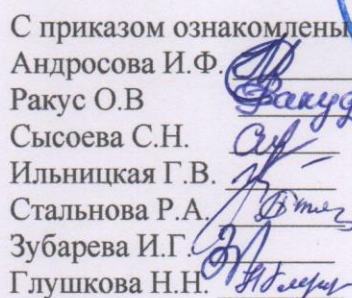 С приказом ознакомлены
Андросова И.Ф.
Ракус О.В
Сысоева С.Н.
Ильницкая Г.В.
Стальнова Р.А.
Зубарева И.Г.
Глушкова Н.Н.